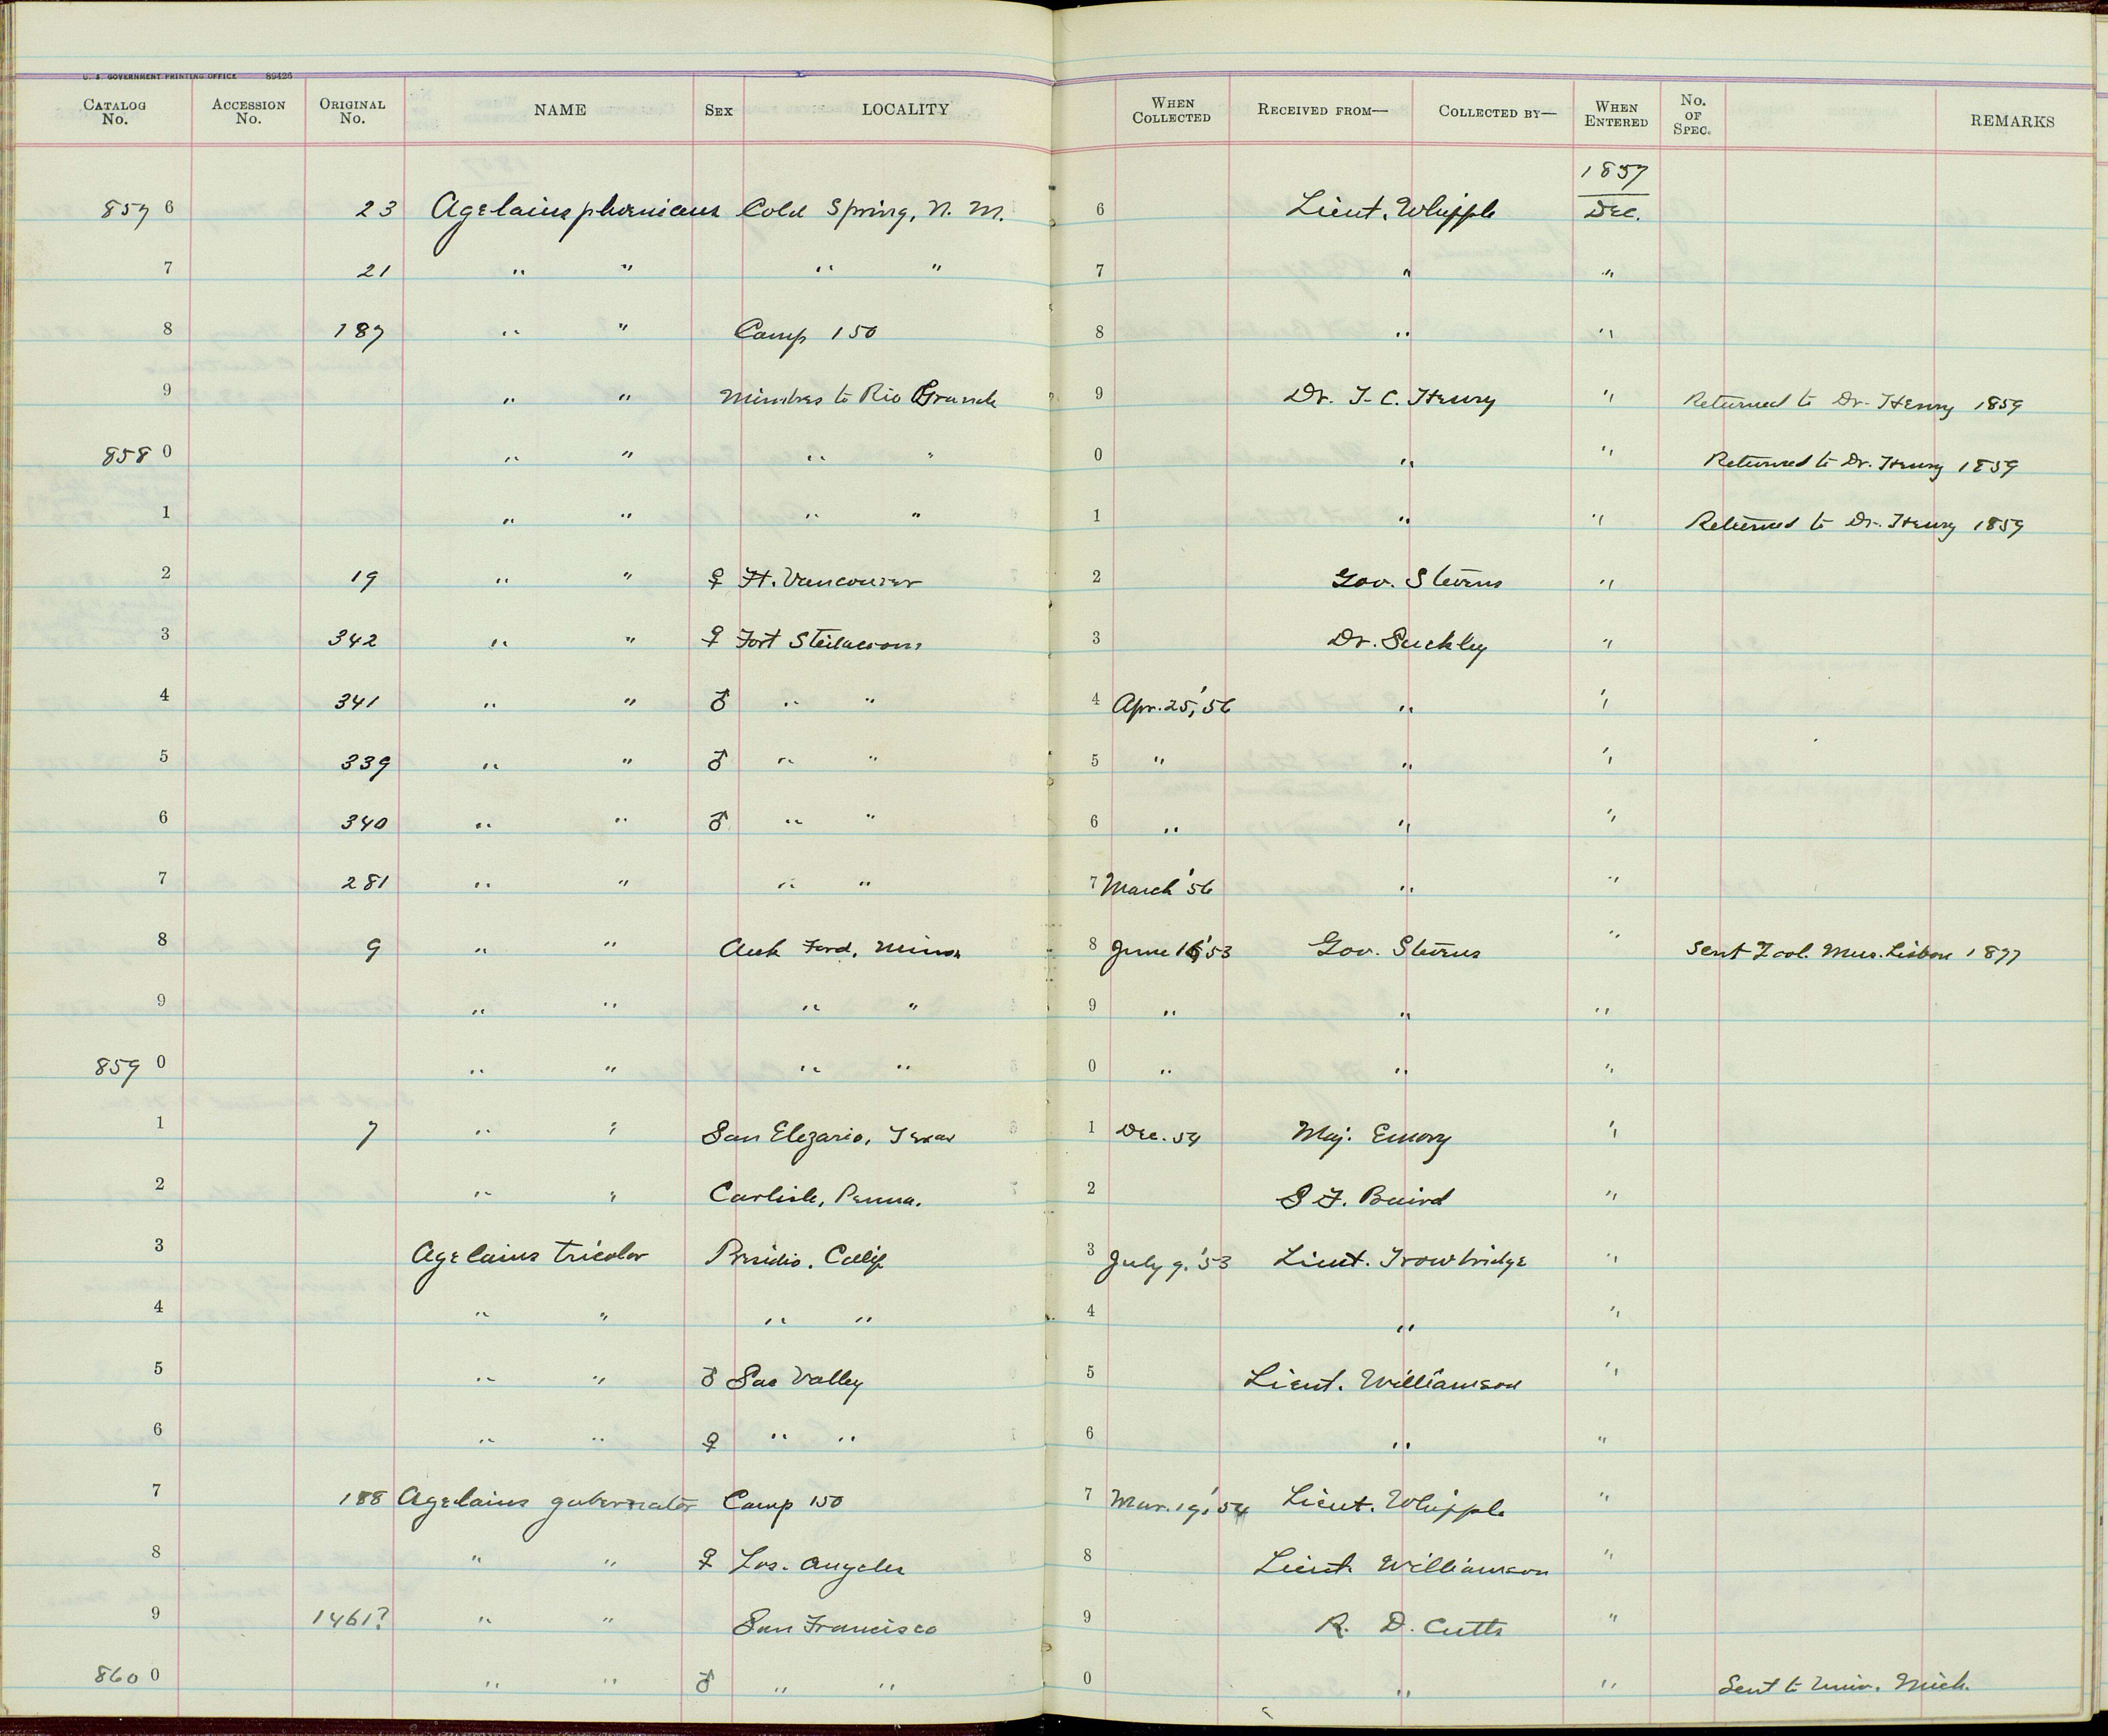 U. S. GOVERNMENT PRINTING OFFICE 89426
CATALOG No. ACCESSION No. ORIGINAL No. NAME SEX LOCALITY WHEN COLLECTED RECEIVED FROM— COLLECTED BY— WHEN ENTERED No. OF SPEC. REMARKS
1857
857 6 23 Agelaius phoeniceus Cold Spring, N. M. 6 Lieut. Whipple Dec.
7 21 " " " " 7 " "
8 187 " " Camp 150 8 " "
9 " " Mimbres to Rio Grande 9 Dr. T. C. Henry " Returned to Dr. Henry 1859
858 0 " " " " 0 " " Returned to Dr. Henry 1859
1 " " " " 1 " " Returned to Dr. Henry 1859
2 19 " " ♀ Ft. Vancouver 2 Gov. Stevens "
3 342 " " ♀ Fort Steilacoom 3 Dr. Suckley "
4 341 " " ♂ " " 4 Apr. 25, '56 " "
5 339 " " ♂ " " 5 " " "
6 340 " " ♂ " " 6 " " "
7 281 " " " " 7 March '56 " "
8 9 " " Auk Ford, Minn 8 June '53 Gov. Stevens " Sent Zool. Mus. Lisbon 1877
9 " " " " 9 " " "
859 0 " " " " 0 " " "
1 7 " " San Elezario, Texas 1 Dec. 54 Maj. Emory "
2 " " Carlisle, Penna. 2 S F. Baird "
3 Agelaius tricolor Presidio, Calif 3 July 9, '53 Lieut. Trowbridge "
4 " " " " 4 " "
5 " " ♂ Sac Valley 5 Lieut. Williamson "
6 " " ♀ " " 6 " "
7 188 Agelaius gubernator Camp 150 7 Mar. 19, '54 Lieut. Whipple "
8 " " ♀ Los. Angeles 8 Lieut. Williamson "
9 1461? " " San Francisco 9 R. D. Cutts "
860 0 " " ♂ " " 0 " " Sent to Univ. Mich.